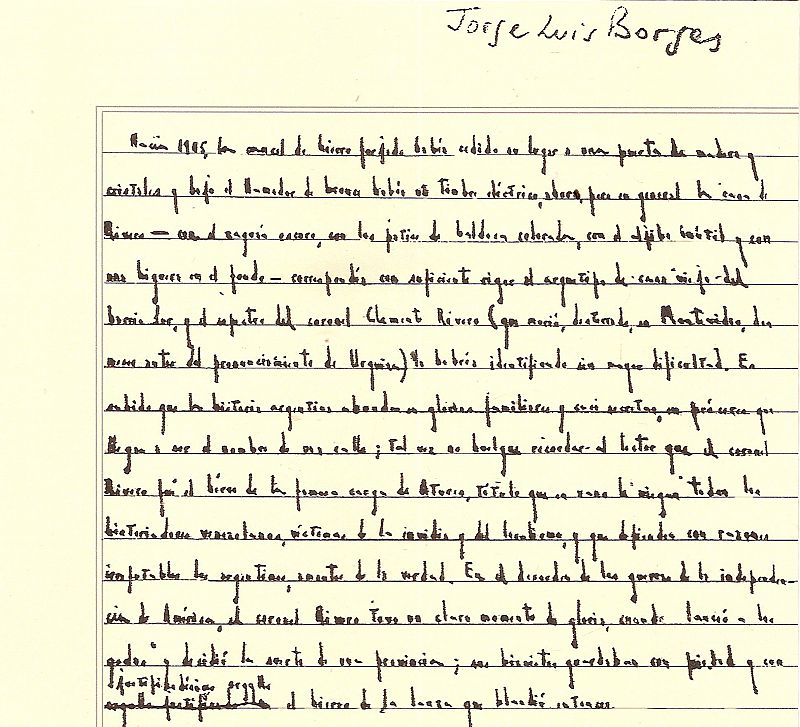 Jorge Luis Borges
Hacia 1905, la cancel de hierro forjado había cedido su lugar a una puerta de madera y
cristales y bajo el llamador de bronce había un timbre eléctrico, ahora, pero en general la casa de
Rivero — con el zaguán oscuro, con los patios de baldosa colorada, con el aljibe inútil y con
una higuera en el fondo — correspondía con suficiente rigor al arquetipo de casa vieja del
barrio Sur, y el espectro del coronel Clemente Rivero (que murió, desterrado, en Montevideo, dos
meses antes del pronunciamiento de Urquiza) la habría identificado sin mayor dificultad. Es
sabido que la historia argentina abunda en glorias familiares y casi secretas, en próceres que
llegan a ser el nombre de una calle; tal vez no huelgue recordar al lector que el coronel
Rivero fué el héroe de la famosa carga de, título que en vano le niegan todos los
historiadores venezolanos, víctimas de la envidia y del localismo, y que defienden con razones
irrefutables los argentinos, amantes de la verdad. En el desorden de las guerras de la independen-
cia de América, el coronel Rivero tuvo un claro momento de gloria, cuando lanceó a los
godos y decidió la suerte de una provincia; sus biznietas guardaban con piedad y con
justificadísimo orgullo
el hierro de la lanza que blandió entonces.